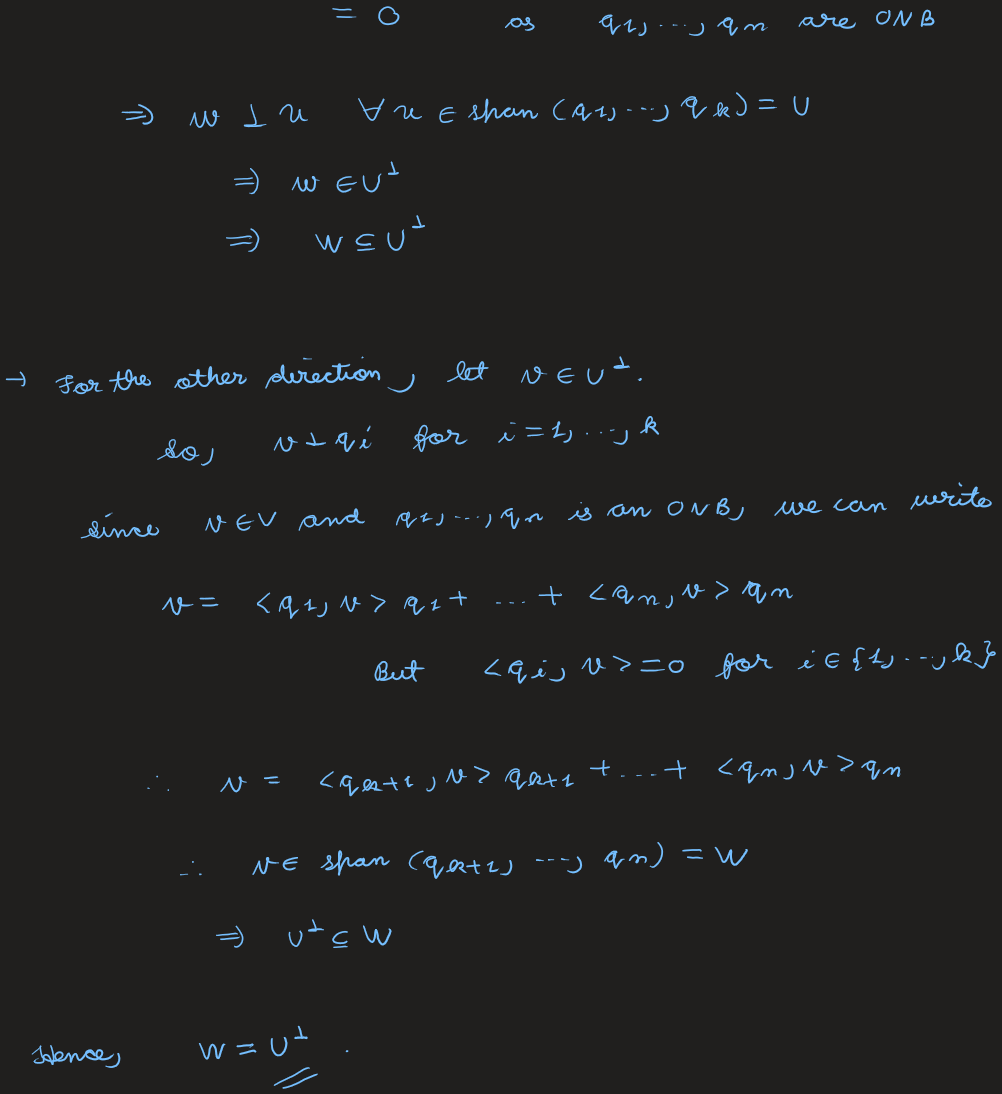 = 0 as q1, ..., qn are ONB
⇒ w ⊥ u ∀ u ∈ span (q1, ..., qk) = U
⇒ w ∈ U⊥
⇒ W ⊆ U⊥
→ For the other direction, let v ∈ U⊥.
So, v ⊥ qi for i = 1, ..., k
since v ∈ V and q1, ..., qn is an ONB, we can write
v = <q1, v> q1 + ... + <qn, v> qn
But <qi, v> = 0 for i ∈ {1, ..., k}
∴ v = <qk+1, v> qk+1 + ... + <qn, v> qn
∴ v ∈ span (qk+1, ..., qn) = W
⇒ U⊥ ⊆ W
Hence, W = U⊥.